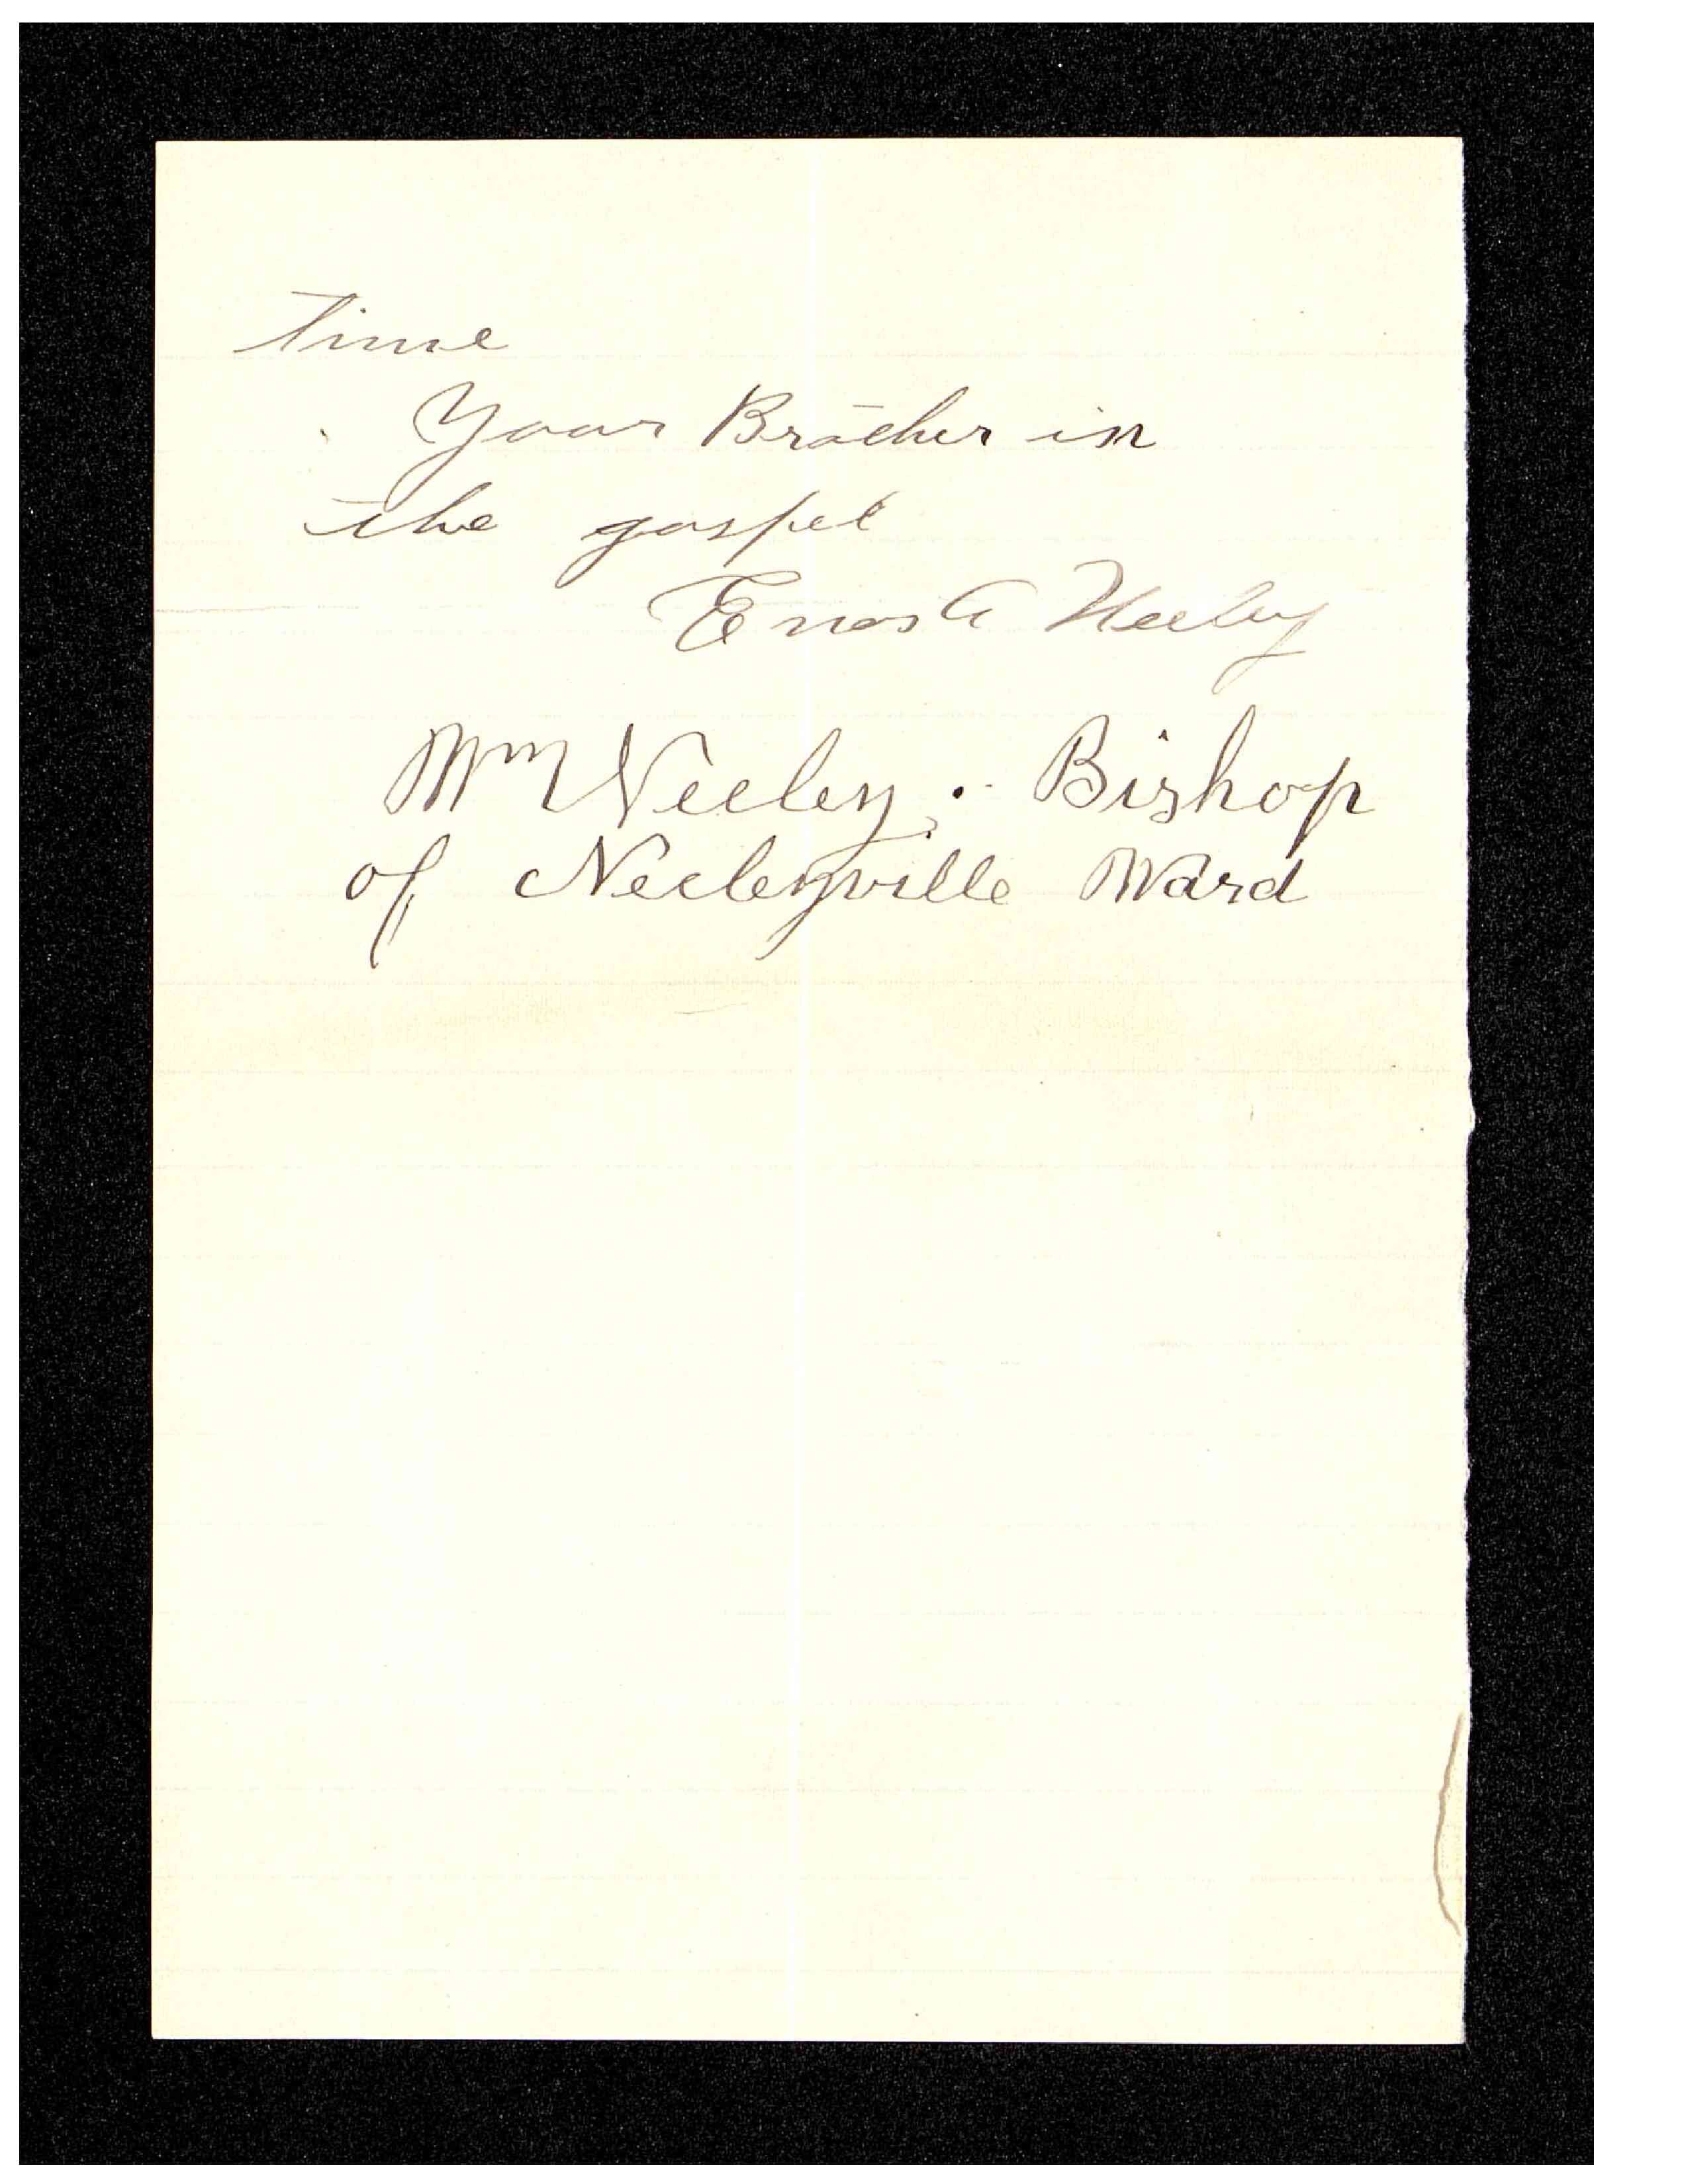 time
Your Brother in
the gospel
Enos A Neeley
Wm Neeley. Bishop
of Neeleyville Ward